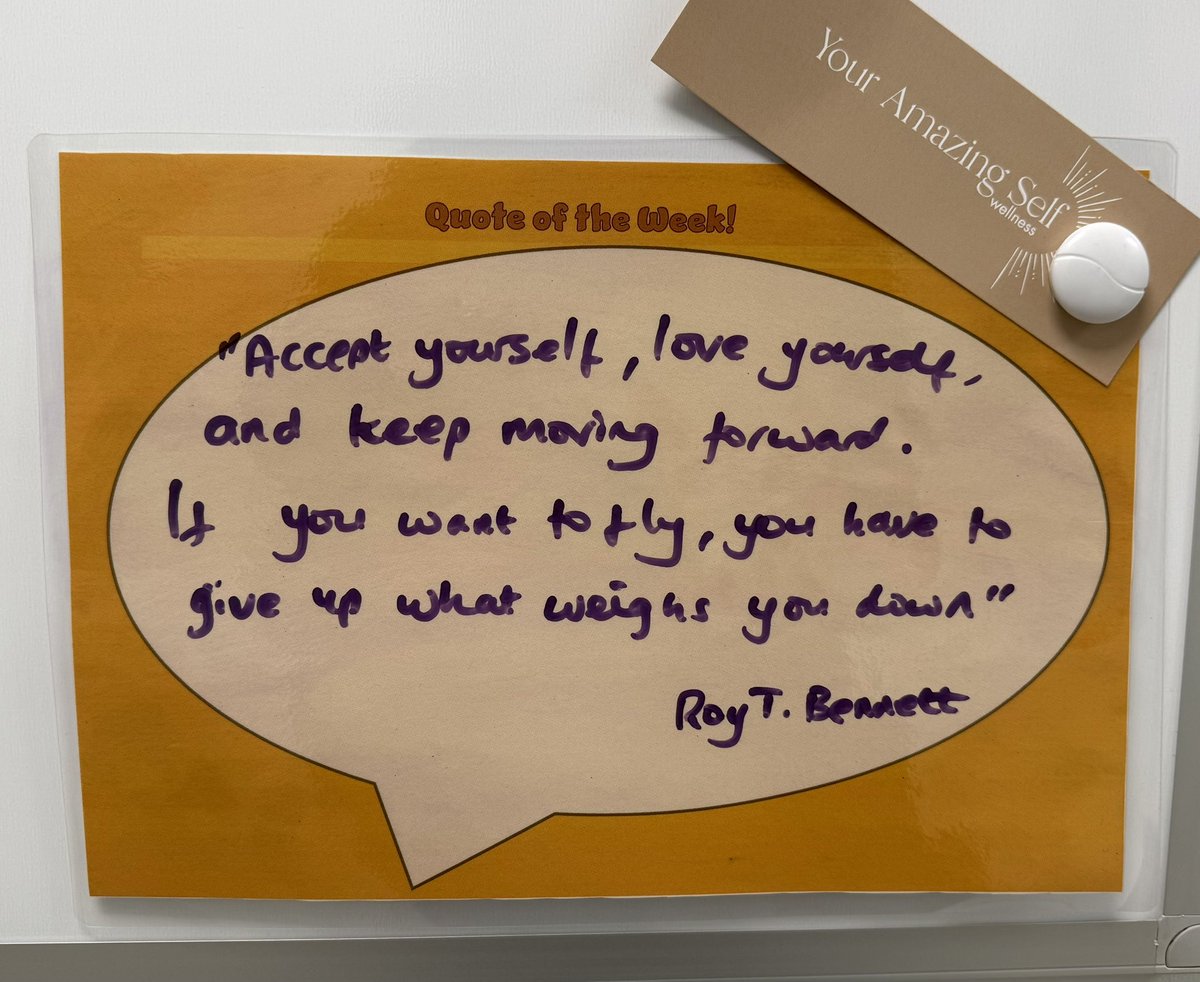 Your Amazing Self
wellness
Quote of the Week!
"Accept yourself, love yourself,
and keep moving forward.
If you want to fly, you have to
give up what weighs you down"
Roy T. Bennett